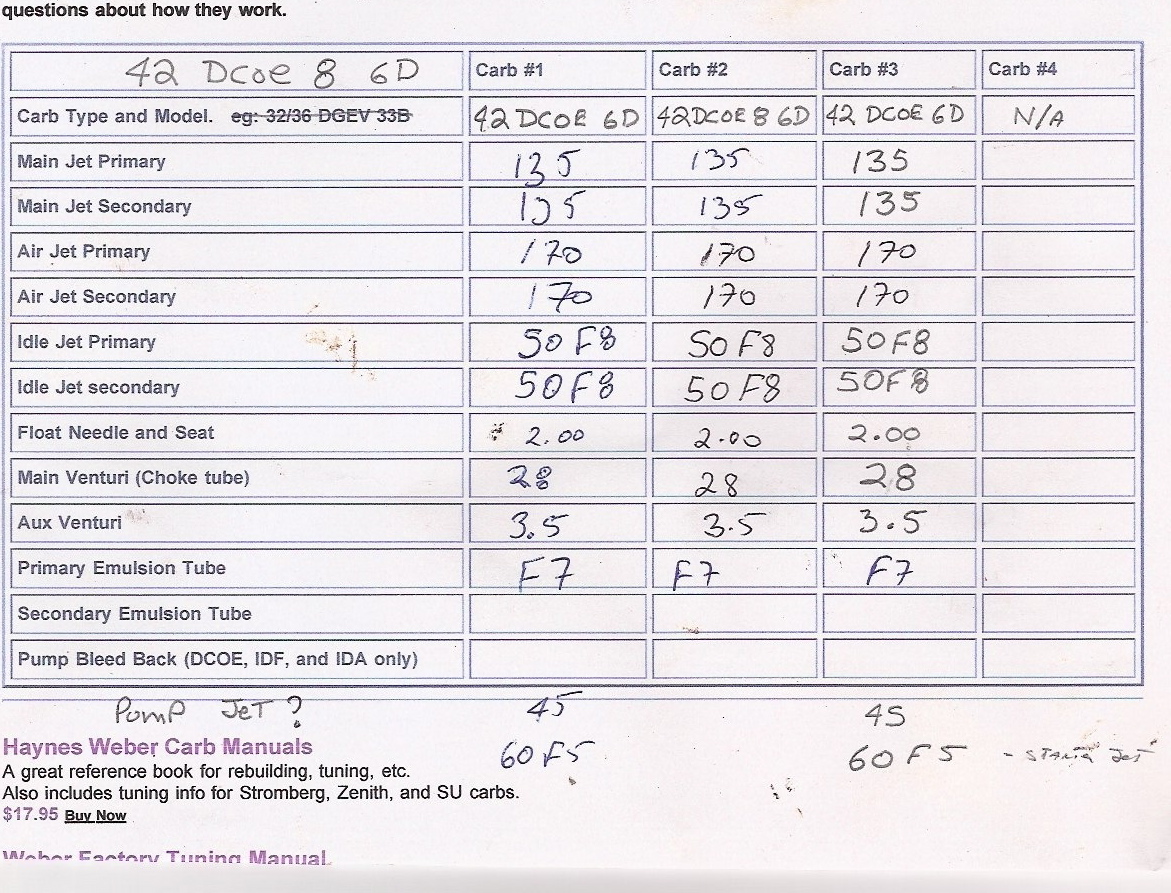 questions about how they work.
42 DCOE 8 6D Carb #1 Carb #2 Carb #3 Carb #4
Carb Type and Model. eg: 32/36 DGEV 33B 42 DCOE 6D 42DCOE 8 6D 42 DCOE 6D N/A
Main Jet Primary 135 135 135
Main Jet Secondary 135 135 135
Air Jet Primary 170 170 170
Air Jet Secondary 170 170 170
Idle Jet Primary 50 F8 50 F8 50F8
Idle Jet secondary 50F8 50 F8 50F8
Float Needle and Seat 2.00 2.00 2.00
Main Venturi (Choke tube) 28 28 28
Aux Venturi 3.5 3.5 3.5
Primary Emulsion Tube F7 F7 F7
Secondary Emulsion Tube
Pump Bleed Back (DCOE, IDF, and IDA only)
PUMP JET? 45 45
Haynes Weber Carb Manuals 60 F5 60 F5 - START JET
A great reference book for rebuilding, tuning, etc.
Also includes tuning info for Stromberg, Zenith, and SU carbs.
$17.95 Buy Now
Weber Factory Tuning Manual